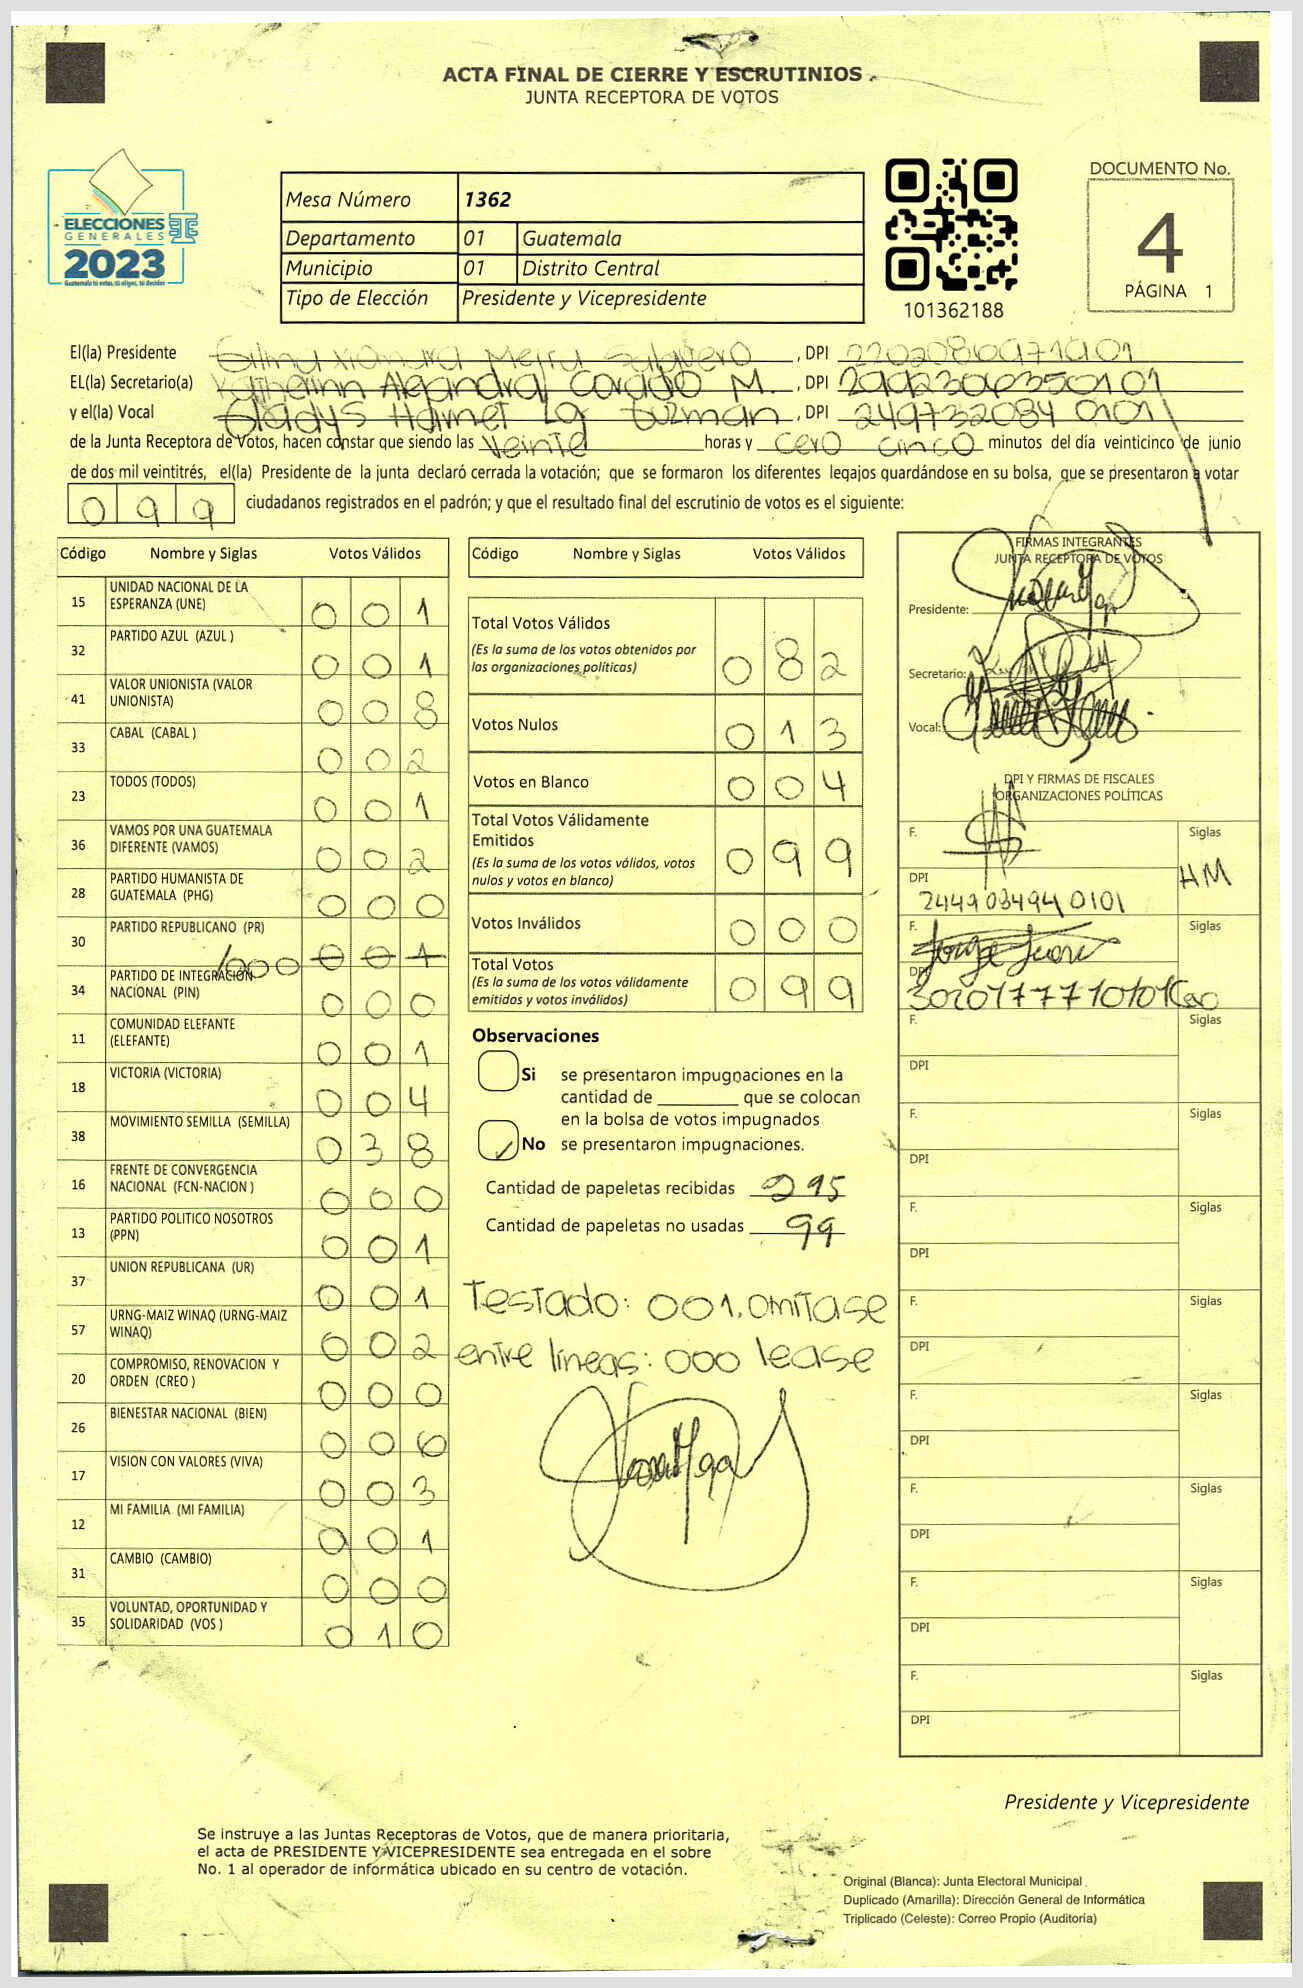 ACTA FINAL DE CIERRE Y ESCRUTINIOS
JUNTA RECEPTORA DE VOTOS
ELECCIONES
GENERALES
2023
Guatemala tú votas, tú eliges, tú decides
Mesa Número 1362
Departamento 01 Guatemala
Municipio 01 Distrito Central
Tipo de Elección Presidente y Vicepresidente
101362188
DOCUMENTO No.
4
PÁGINA 1
El(la) Presidente , DPI
EL(la) Secretario(a) Katherinn Alejandra Corado M. , DPI
y el(la) Vocal Gladys Guzman , DPI 249732084 0101
de la Junta Receptora de Votos, hacen constar que siendo las veinte horas y cero cinco minutos del día veinticinco de junio
de dos mil veintitrés, el(la) Presidente de la junta declaró cerrada la votación; que se formaron los diferentes legajos guardándose en su bolsa, que se presentaron a votar
099 ciudadanos registrados en el padrón; y que el resultado final del escrutinio de votos es el siguiente:
Código Nombre y Siglas Votos Válidos
15 UNIDAD NACIONAL DE LA
ESPERANZA (UNE) 001
32 PARTIDO AZUL (AZUL ) 001
41 VALOR UNIONISTA (VALOR
UNIONISTA) 008
33 CABAL (CABAL ) 002
23 TODOS (TODOS) 001
36 VAMOS POR UNA GUATEMALA
DIFERENTE (VAMOS) 002
28 PARTIDO HUMANISTA DE
GUATEMALA (PHG) 000
30 PARTIDO REPUBLICANO (PR) 000 001
34 PARTIDO DE INTEGRACIÓN
NACIONAL (PIN) 000
11 COMUNIDAD ELEFANTE
(ELEFANTE) 001
18 VICTORIA (VICTORIA) 004
38 MOVIMIENTO SEMILLA (SEMILLA) 038
16 FRENTE DE CONVERGENCIA
NACIONAL (FCN-NACION ) 000
13 PARTIDO POLITICO NOSOTROS
(PPN) 001
37 UNION REPUBLICANA (UR) 001
57 URNG-MAIZ WINAQ (URNG-MAIZ
WINAQ) 002
20 COMPROMISO, RENOVACION Y
ORDEN (CREO ) 000
26 BIENESTAR NACIONAL (BIEN) 006
17 VISION CON VALORES (VIVA) 003
12 MI FAMILIA (MI FAMILIA) 001
31 CAMBIO (CAMBIO) 000
35 VOLUNTAD, OPORTUNIDAD Y
SOLIDARIDAD (VOS ) 010
Código Nombre y Siglas Votos Válidos
Total Votos Válidos 082
(Es la suma de los votos obtenidos por
las organizaciones políticas)
Votos Nulos 013
Votos en Blanco 004
Total Votos Válidamente
Emitidos 099
(Es la suma de los votos válidos, votos
nulos y votos en blanco)
Votos Inválidos 000
Total Votos 099
(Es la suma de los votos válidamente
emitidos y votos inválidos)
Observaciones
Si se presentaron impugnaciones en la
cantidad de ________ que se colocan
en la bolsa de votos impugnados
No se presentaron impugnaciones.
Cantidad de papeletas recibidas 295
Cantidad de papeletas no usadas 99
Testado: 001, omitase
entre líneas: 000 lease
FIRMAS INTEGRANTES
JUNTA RECEPTORA DE VOTOS
Presidente:
Secretario:
Vocal:
DPI Y FIRMAS DE FISCALES
ORGANIZACIONES POLÍTICAS
F. Siglas
HM
DPI
244903494 0101
F. Siglas
DPI
F. Siglas
DPI
F. Siglas
DPI
F. Siglas
DPI
F. Siglas
DPI
F. Siglas
DPI
F. Siglas
DPI
F. Siglas
DPI
F. Siglas
DPI
Presidente y Vicepresidente
Se instruye a las Juntas Receptoras de Votos, que de manera prioritaria,
el acta de PRESIDENTE Y VICEPRESIDENTE sea entregada en el sobre
No. 1 al operador de informática ubicado en su centro de votación.
Original (Blanca): Junta Electoral Municipal
Duplicado (Amarilla): Dirección General de Informática
Triplicado (Celeste): Correo Propio (Auditoría)